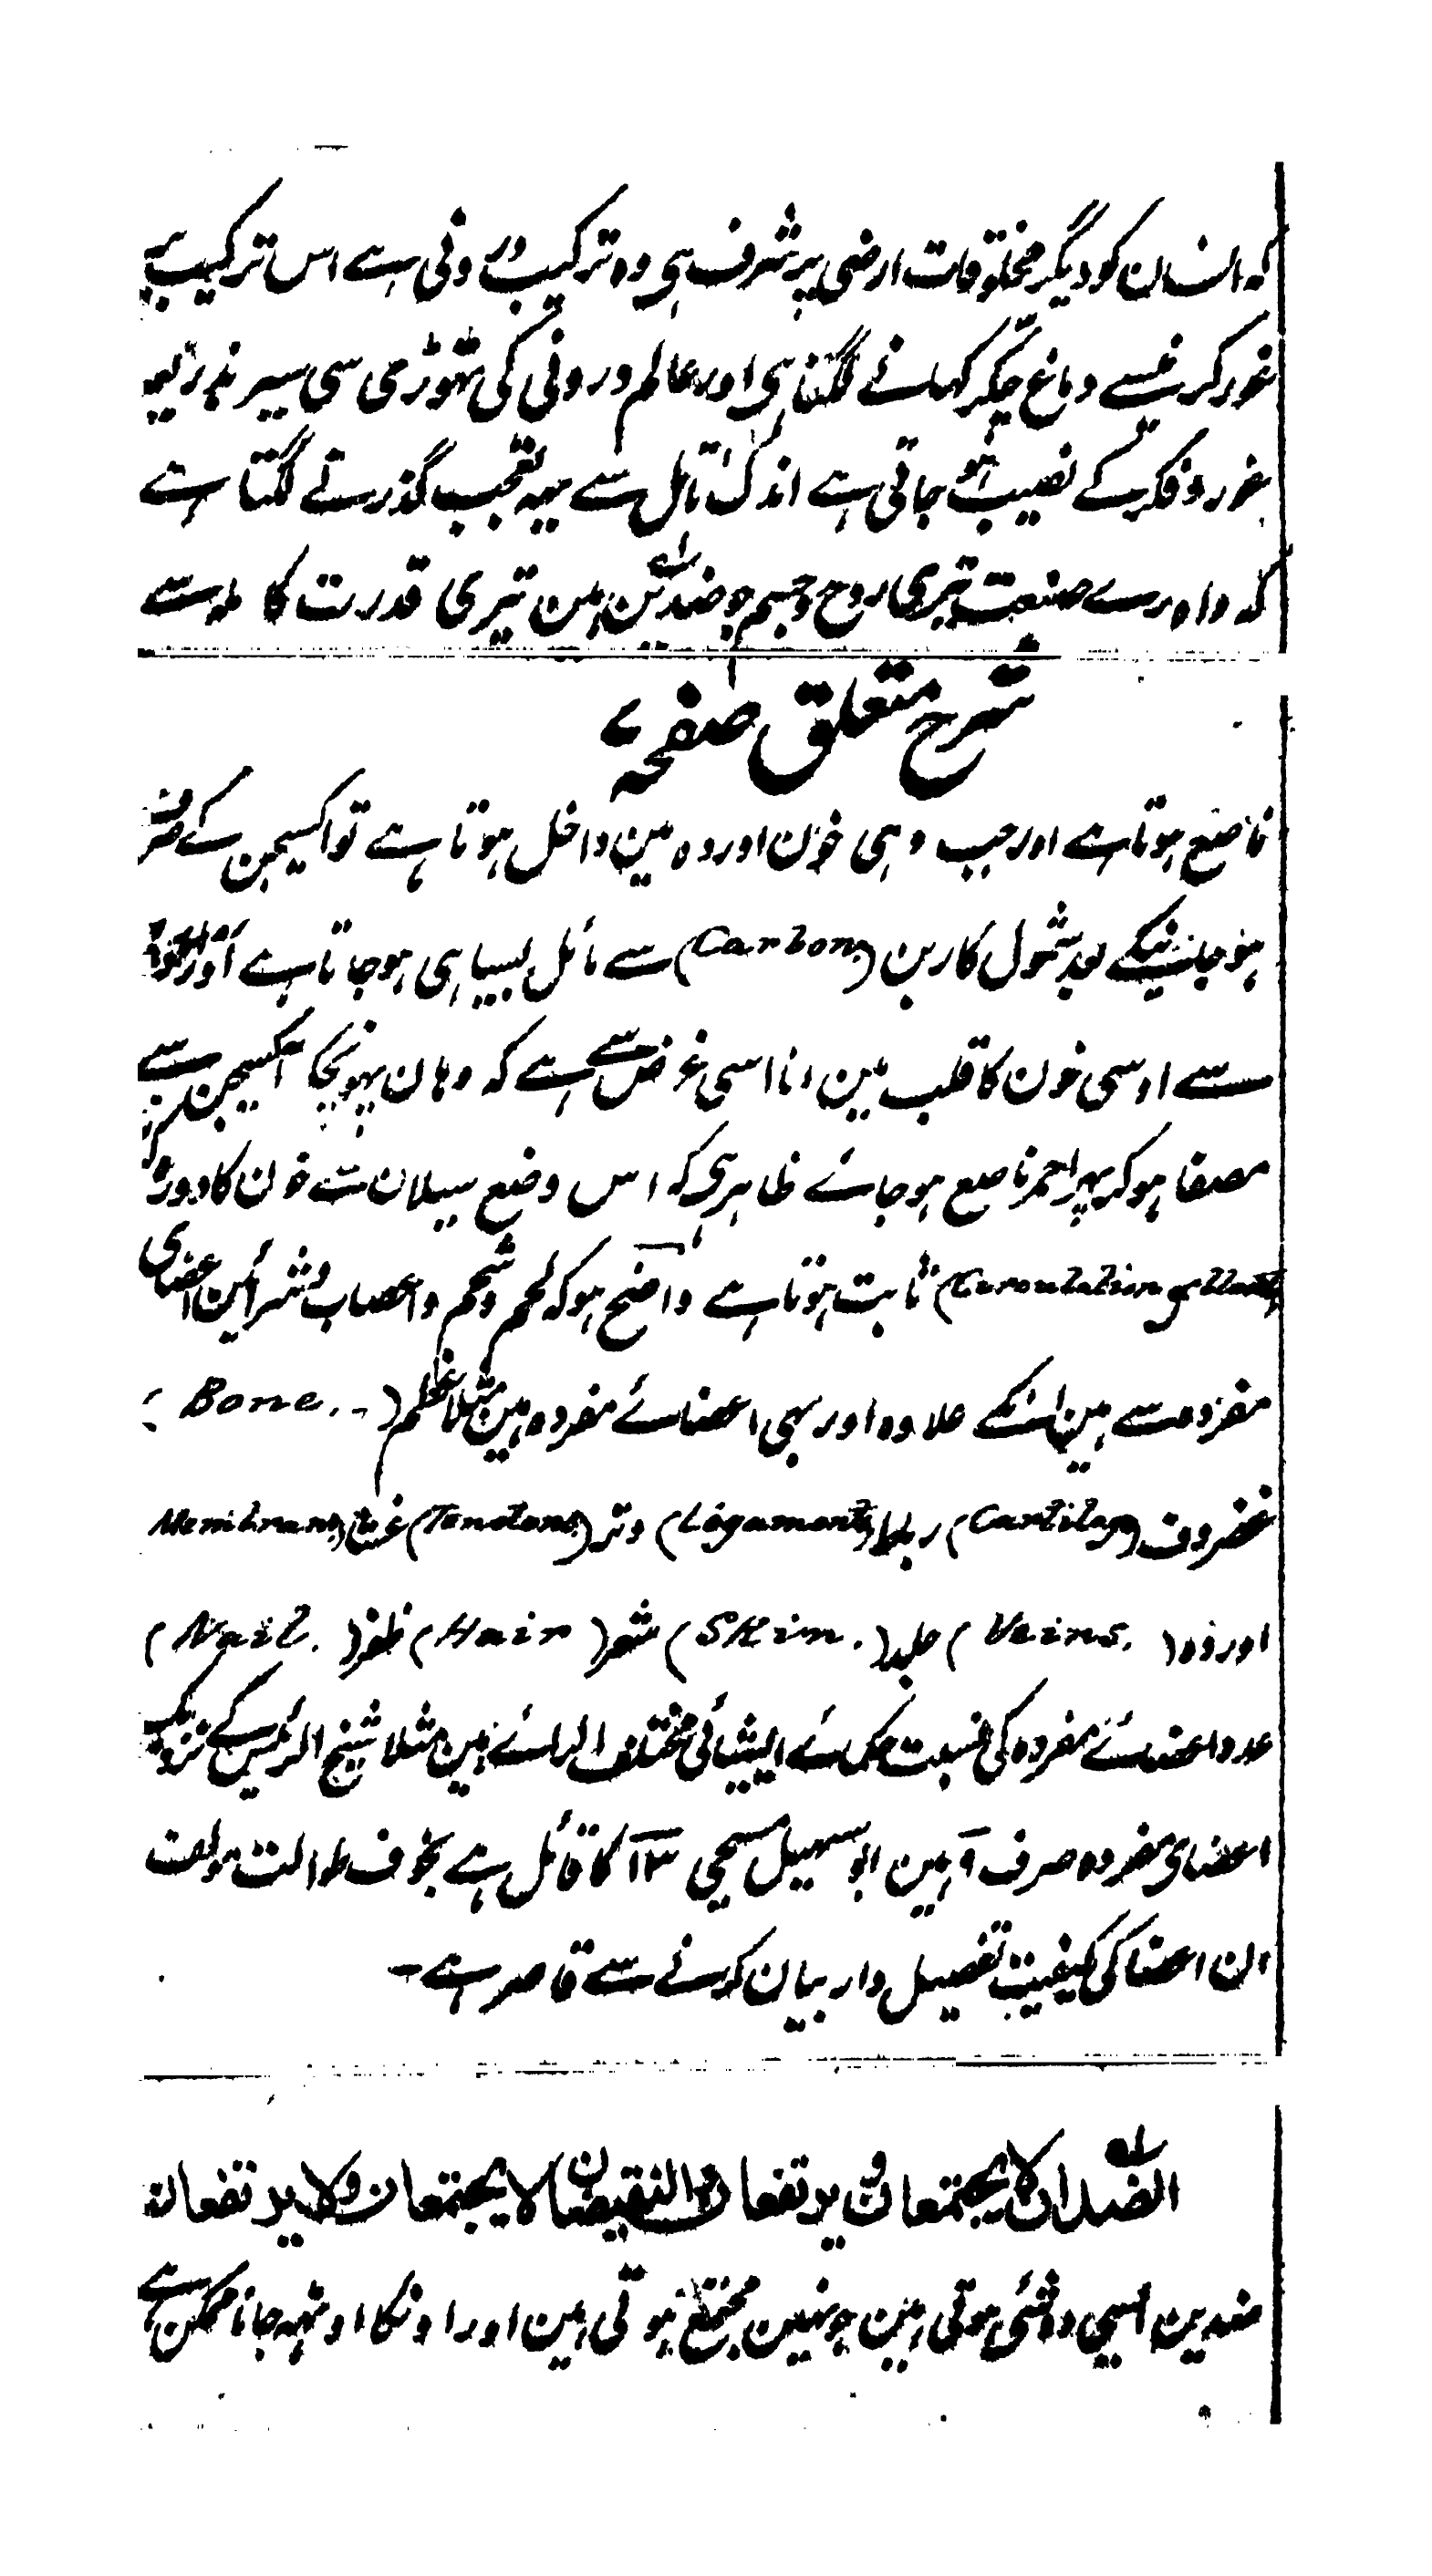 کہ انسان کو دیگر مخلوقات ارضی پر شرف ہی وہ ترکیب درونی ہے اس ترکیب پر
غور کرنیسے دماغ چکر کہانے لگتا ہی اور عالم درونی کی تہوڑی سی سیر بذریعہ
غور و فکر کے نصیب ہو جاتی ہے اندک تامل سے یہہ تعجب گذرنے لگتا ہے
کہ واہ رے صنعت تیری روح و جسم جو ضدین ہین تیری قدرت کاملہ سے
شرح متعلق صفحہ ۷
ناصع ہوتا ہے اور جب وہی خون اوردہ مین داخل ہوتا ہے تو اکسیجن کے صرف
ہو جانیکے بعد شمول کاربن (Carbon) سے مائل بسیاہی ہو جاتا ہے
سے اوسی خون کا قلب مین انا اسی غرض سے ہے کہ وہان پہونچکا اکسیجن سے
مصفا ہو کر پہر احمر ناصع ہو جائے ظاہر ہی کہ اس وضع سیلان سے خون کا دورہ
(Curoulation of Blood) ثابت ہوتا ہے واضح ہو کہ لحم و شحم و اعصاب و شرائین اعضای
مفردہ سے ہین انکے علاوہ اور بہی اعضائے مفردہ ہین مثلا عظم (Bone.)
غضروف (Cartilage) رباط (Ligaments) وتر (Tenotons) غشا (Membrans)
اوردہ (Veins.) جلد (Skin.) شعر (Hair) ظفر (Nail.)
عدد اعضائے مفردہ کی نسبت حکمائے ایشیائی مختلف الرائے ہین مثلا شیخ الرئیس کے نزدیک
اعضای مفردہ صرف ۹ ہین ابو سہیل مسیحی ۱۳ کا قائل ہے بخوف طوالت مولف
ان اعضا کی کیفیت تفصیل وار بیان کرنے سے قاصر ہے۔
الضدان لا یجتمعان و یرتفعان و النقیضان لا یجتمعان ولا یرتفعان
ضدین ایسی دو شئی ہوتی ہین جو نہین مجتمع ہوتی ہین اور اونکا اوٹہہ جانا ممکن ہے